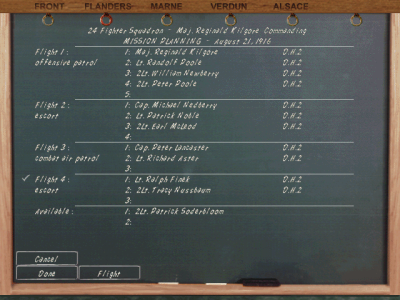 FRONT FLANDERS MARNE VERDUN ALSACE
24 Fighter Squadron - Maj. Reginald Kilgore Commanding
MISSION PLANNING - August 21, 1916
Flight 1: 1: Maj. Reginald Kilgore D.H.2
offensive patrol 2: Lt. Randolf Poole D.H.2
3: 2Lt. William Newberry D.H.2
4: 2Lt. Peter Doole D.H.2
5:
Flight 2: 1: Cap. Michael Nedberry D.H.2
escort 2: Lt. Patrick Noble D.H.2
3: 2Lt. Earl McLeod D.H.2
4:
Flight 3: 1: Cap. Peter Lancaster D.H.2
combat air patrol 2: Lt. Richard Aster D.H.2
3:
Flight 4: 1: Lt. Ralph Finek D.H.2
escort 2: 2Lt. Tracy Nussbaum D.H.2
3:
Available: 1: 2Lt. Patrick Soderbloom
2:
Cancel
Done Flight